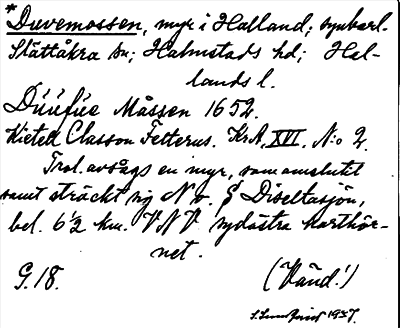 *Duvemossen, myr i Halland; synbarl.
Slättåkra sn; Halmstads hd; Hal-
lands l.
Düüfüe Måssen 1652.
Kietell Classon Felterus. KrA, XVI, N:o 2.
Trol. avsågs en myr, som omslutit
samt sträckt sig N o. S Diseltasjön,
bel. 6½ km. VNV sydöstra karthör-
net.
G. 18.
(Vänd!)
1937.